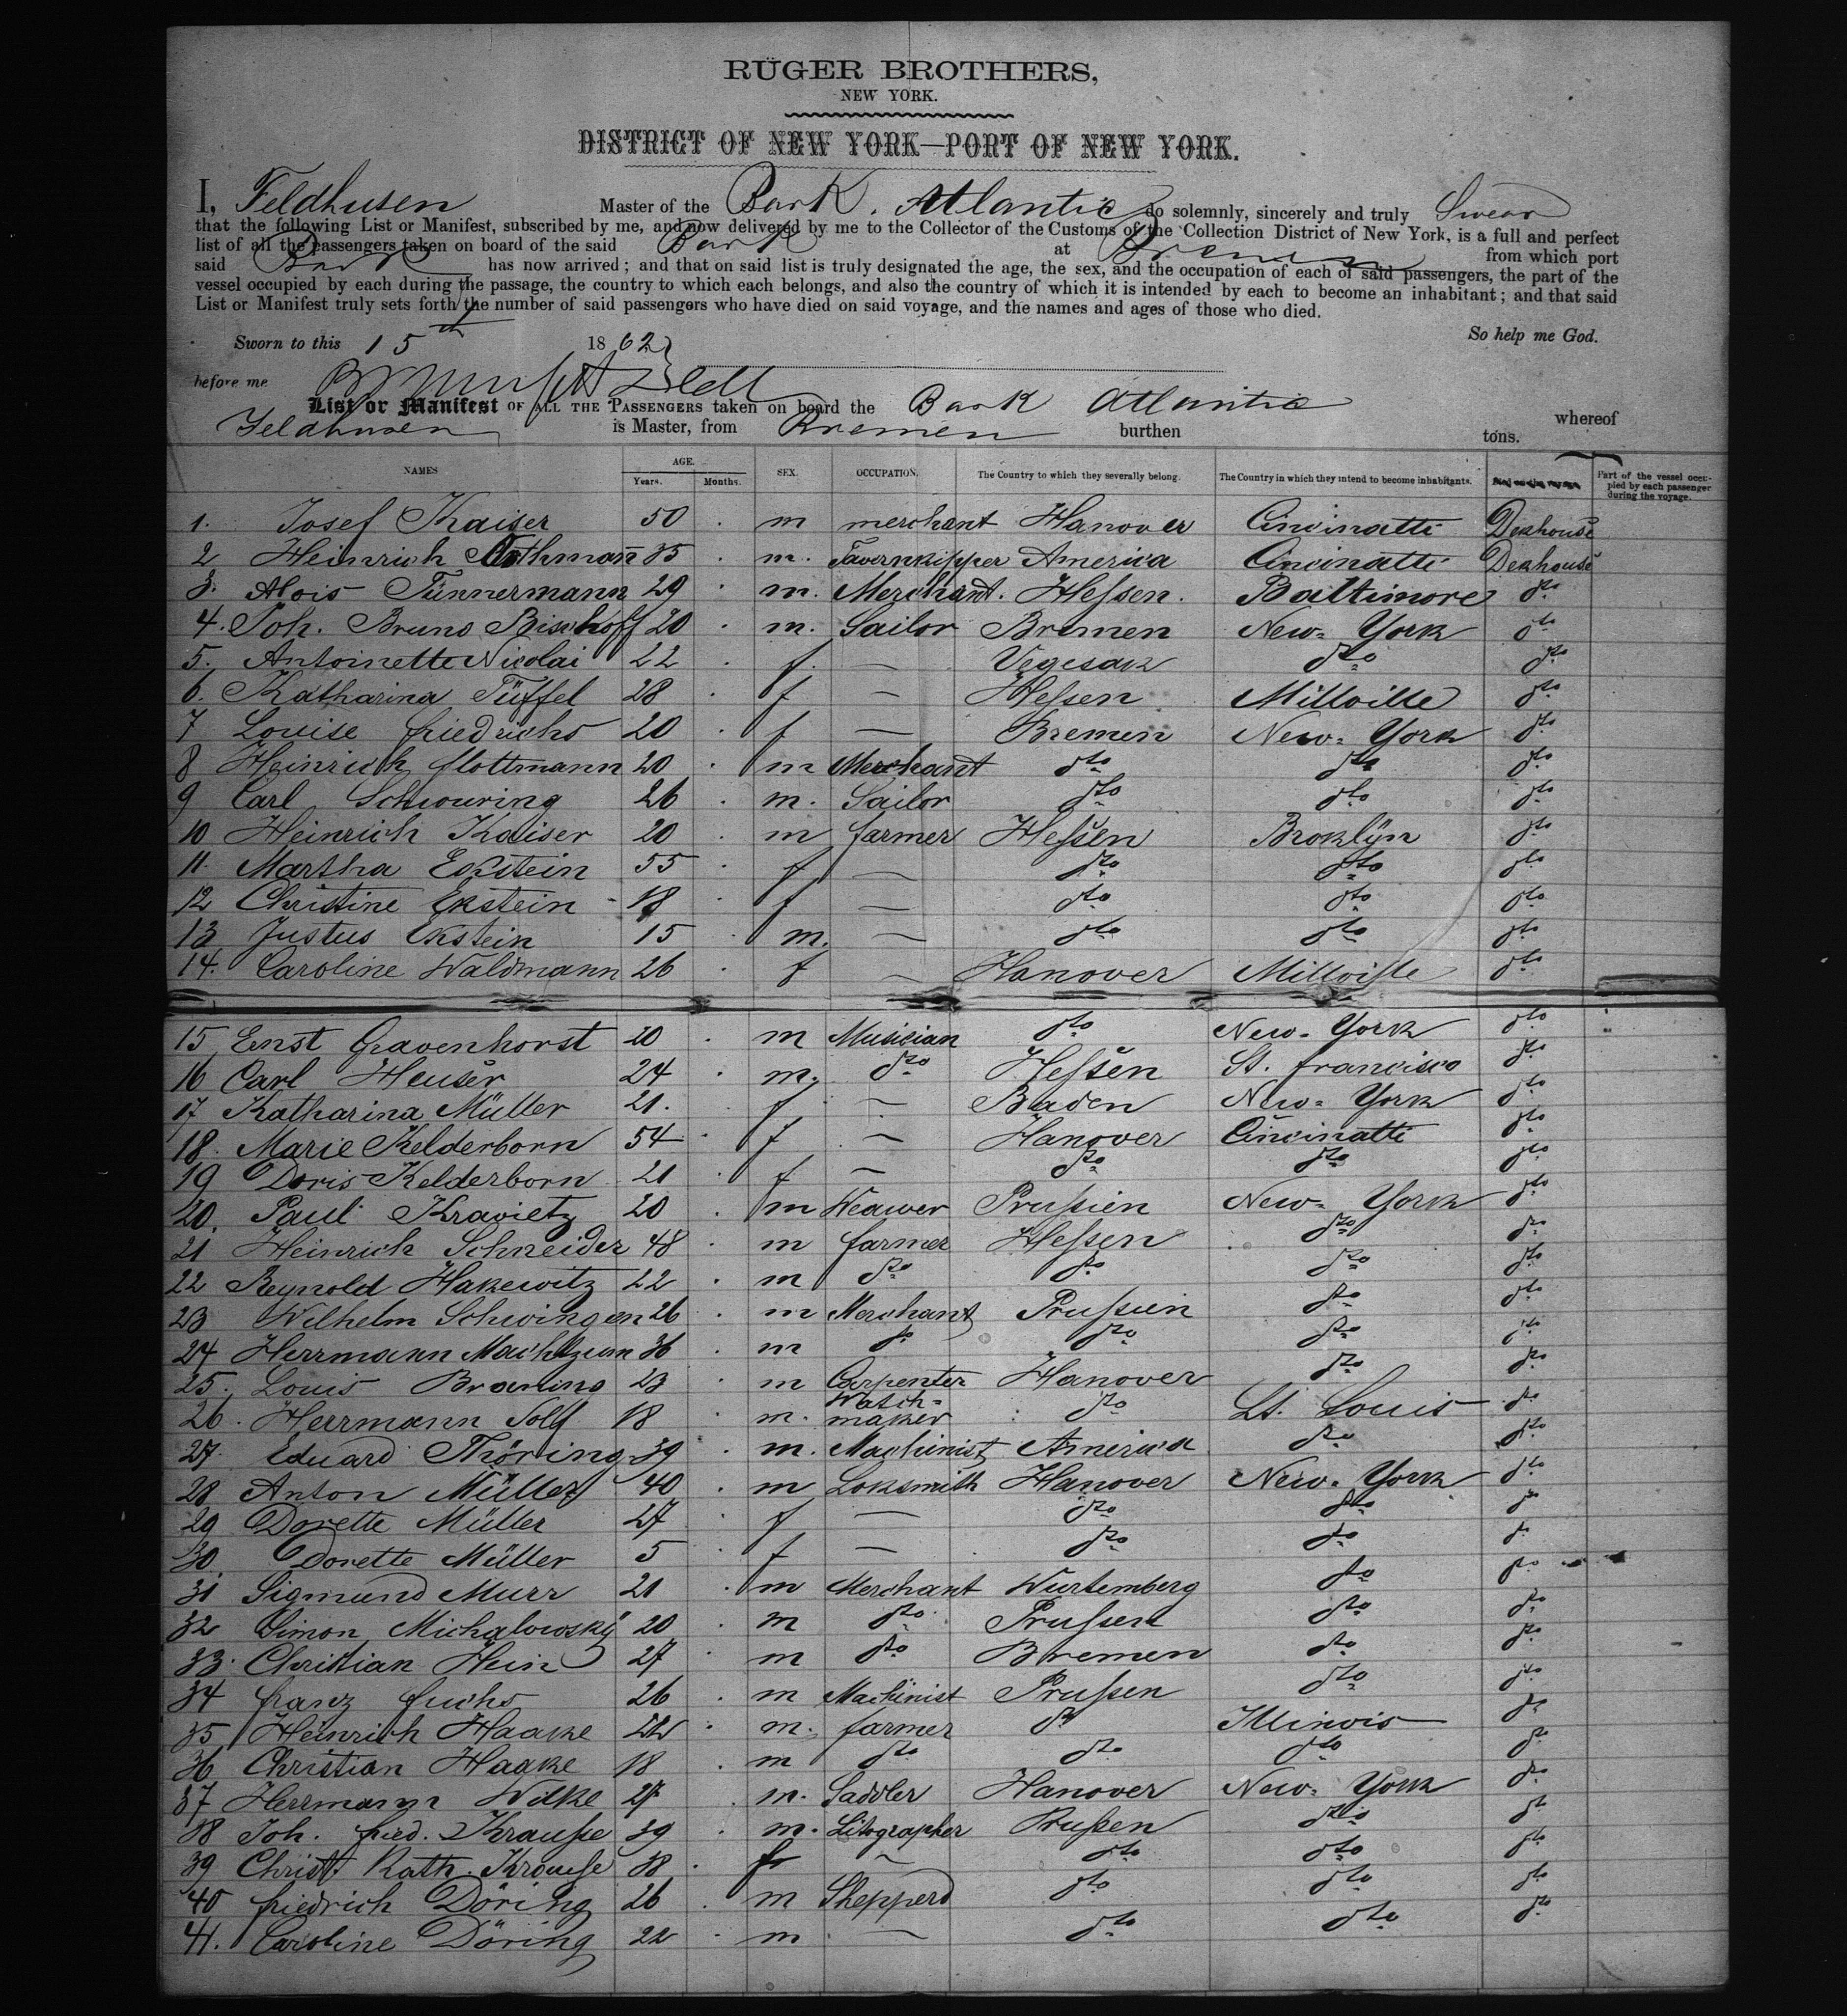 RÜGER BROTHERS,
NEW YORK.
DISTRICT OF NEW YORK—PORT OF NEW YORK.
I, Feldhusen Master of the Bark. Atlantic do solemnly, sincerely and truly Swear
that the following List or Manifest, subscribed by me, and now delivered by me to the Collector of the Customs of the Collection District of New York, is a full and perfect
list of all the passengers taken on board of the said Bark at Bremen from which port
said Bark has now arrived; and that on said list is truly designated the age, the sex, and the occupation of each of said passengers, the part of the
vessel occupied by each during the passage, the country to which each belongs, and also the country of which it is intended by each to become an inhabitant; and that said
List or Manifest truly sets forth the number of said passengers who have died on said voyage, and the names and ages of those who died.
So help me God.
Sworn to this 15th 1862
before me
List or Manifest OF ALL THE PASSENGERS taken on board the Bark Atlantic whereof
Feldhusen is Master, from Bremen burthen tons.
NAMES AGE. Years. Months. SEX. OCCUPATION. The Country to which they severally belong. The Country in which they intend to become inhabitants. Died on the voyage Part of the vessel occupied by each passenger during the voyage.
1. Josef Kaiser 50 . m merchant Hanover Cincinatti Dekhouse
2 Heinrich 35 . m. Tavernkipper America Cincinatti Dekhouse
3. Alois Tünnermann 29 . m. Merchant. Heſsen. Baltimore dto
4. Joh. Bruno Bischoff 20 . m. Sailor Bremen New=York dto
5. Antoinette Nicolai 22 . f. — Vegesak dto dto
6. Katharina Tüffel 28 . f — Heſsen Millville dto
7 Louise friedrichs 20 . f — Bremen New=York dto
8 Heinrich flottmann 20 . m Merchant dto dto dto
9 Carl Schwuring 26 . m. Sailor dto dto dto
10 Heinrich Kaiser 20 . m farmer Heſsen Broklyn dto
11. Martha Ekstein 55 . f — dto dto dto
12 Christine Ekstein 18 . f — dto dto dto
13 Justus Ekstein 15 . m. — dto dto dto
14. Caroline Waldmann 26 . f — Hanover Millville dto
15 Ernst Gravenhorst 20 . m Musician dto New=York dto
16 Carl Heuser 24 . m. dto Heſsen St. francisco dto
17 Katharina Müller 21. . f — Baden New=York dto
18. Marie Kelderborn 54 . f — Hanover Cincinatti dto
19 Doris Kelderborn 21 . f — dto dto dto
20. Paul Kravietz 20 . m Weawer Pruſsien New=York dto
21 Heinrich Schneider 48 . m farmer Heſsen dto dto
22 Reynold Hakewitz 22 . m dto dto dto dto
23 Wilhelm Schwingen 26 . m Merchant Pruſsien dto dto
24 Herrmann 36 . m do dto dto dto
25. Louis Braning 23 . m Carpenter Hanover dto dto
26. Herrmann Solf 18 . m. Watch=maker dto St. Louis dto
27. Eduard Thöring 39 . m. Machinist America dto dto
28 Anton Müller 40 . m Loksmith Hanover New=York dto
29 Dorette Müller 27 . f — dto dto do
30. Dorette Müller 5 . f — dto dto do
31 Sigmund Murr 21 . m Merchant Wurtemberg dto dto
32 Simon Michalowsky 20 . m dto Pruſsen dto dto
33. Christian Hein 27 . m dto Bremen dto dto
34 franz fuchs 26 . m Machinist Pruſsen dto dto
35 Heinrich Haake 22 . m. farmer dto Illinois dto
36 Christian Haake 18 . m dto dto dto dto
37 Herrmann Wilke 27 . m. Saddler Hanover New=York dto
38 Joh. fried. Krauſse 39 . m. Litographer Pruſsen dto dto
39 Christ. Kath. Krauſse 38 . f — dto dto dto
40 friedrich Döring 26 . m Shepperd dto dto dto
41. Caroline Döring 22 . m — dto dto dto